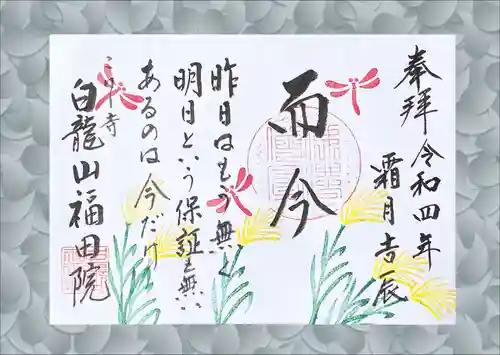 奉拝 令和四年
霜月吉辰
而今
昨日はもう無く
明日という保証も無い
あるのは今だけ
白龍山福田院